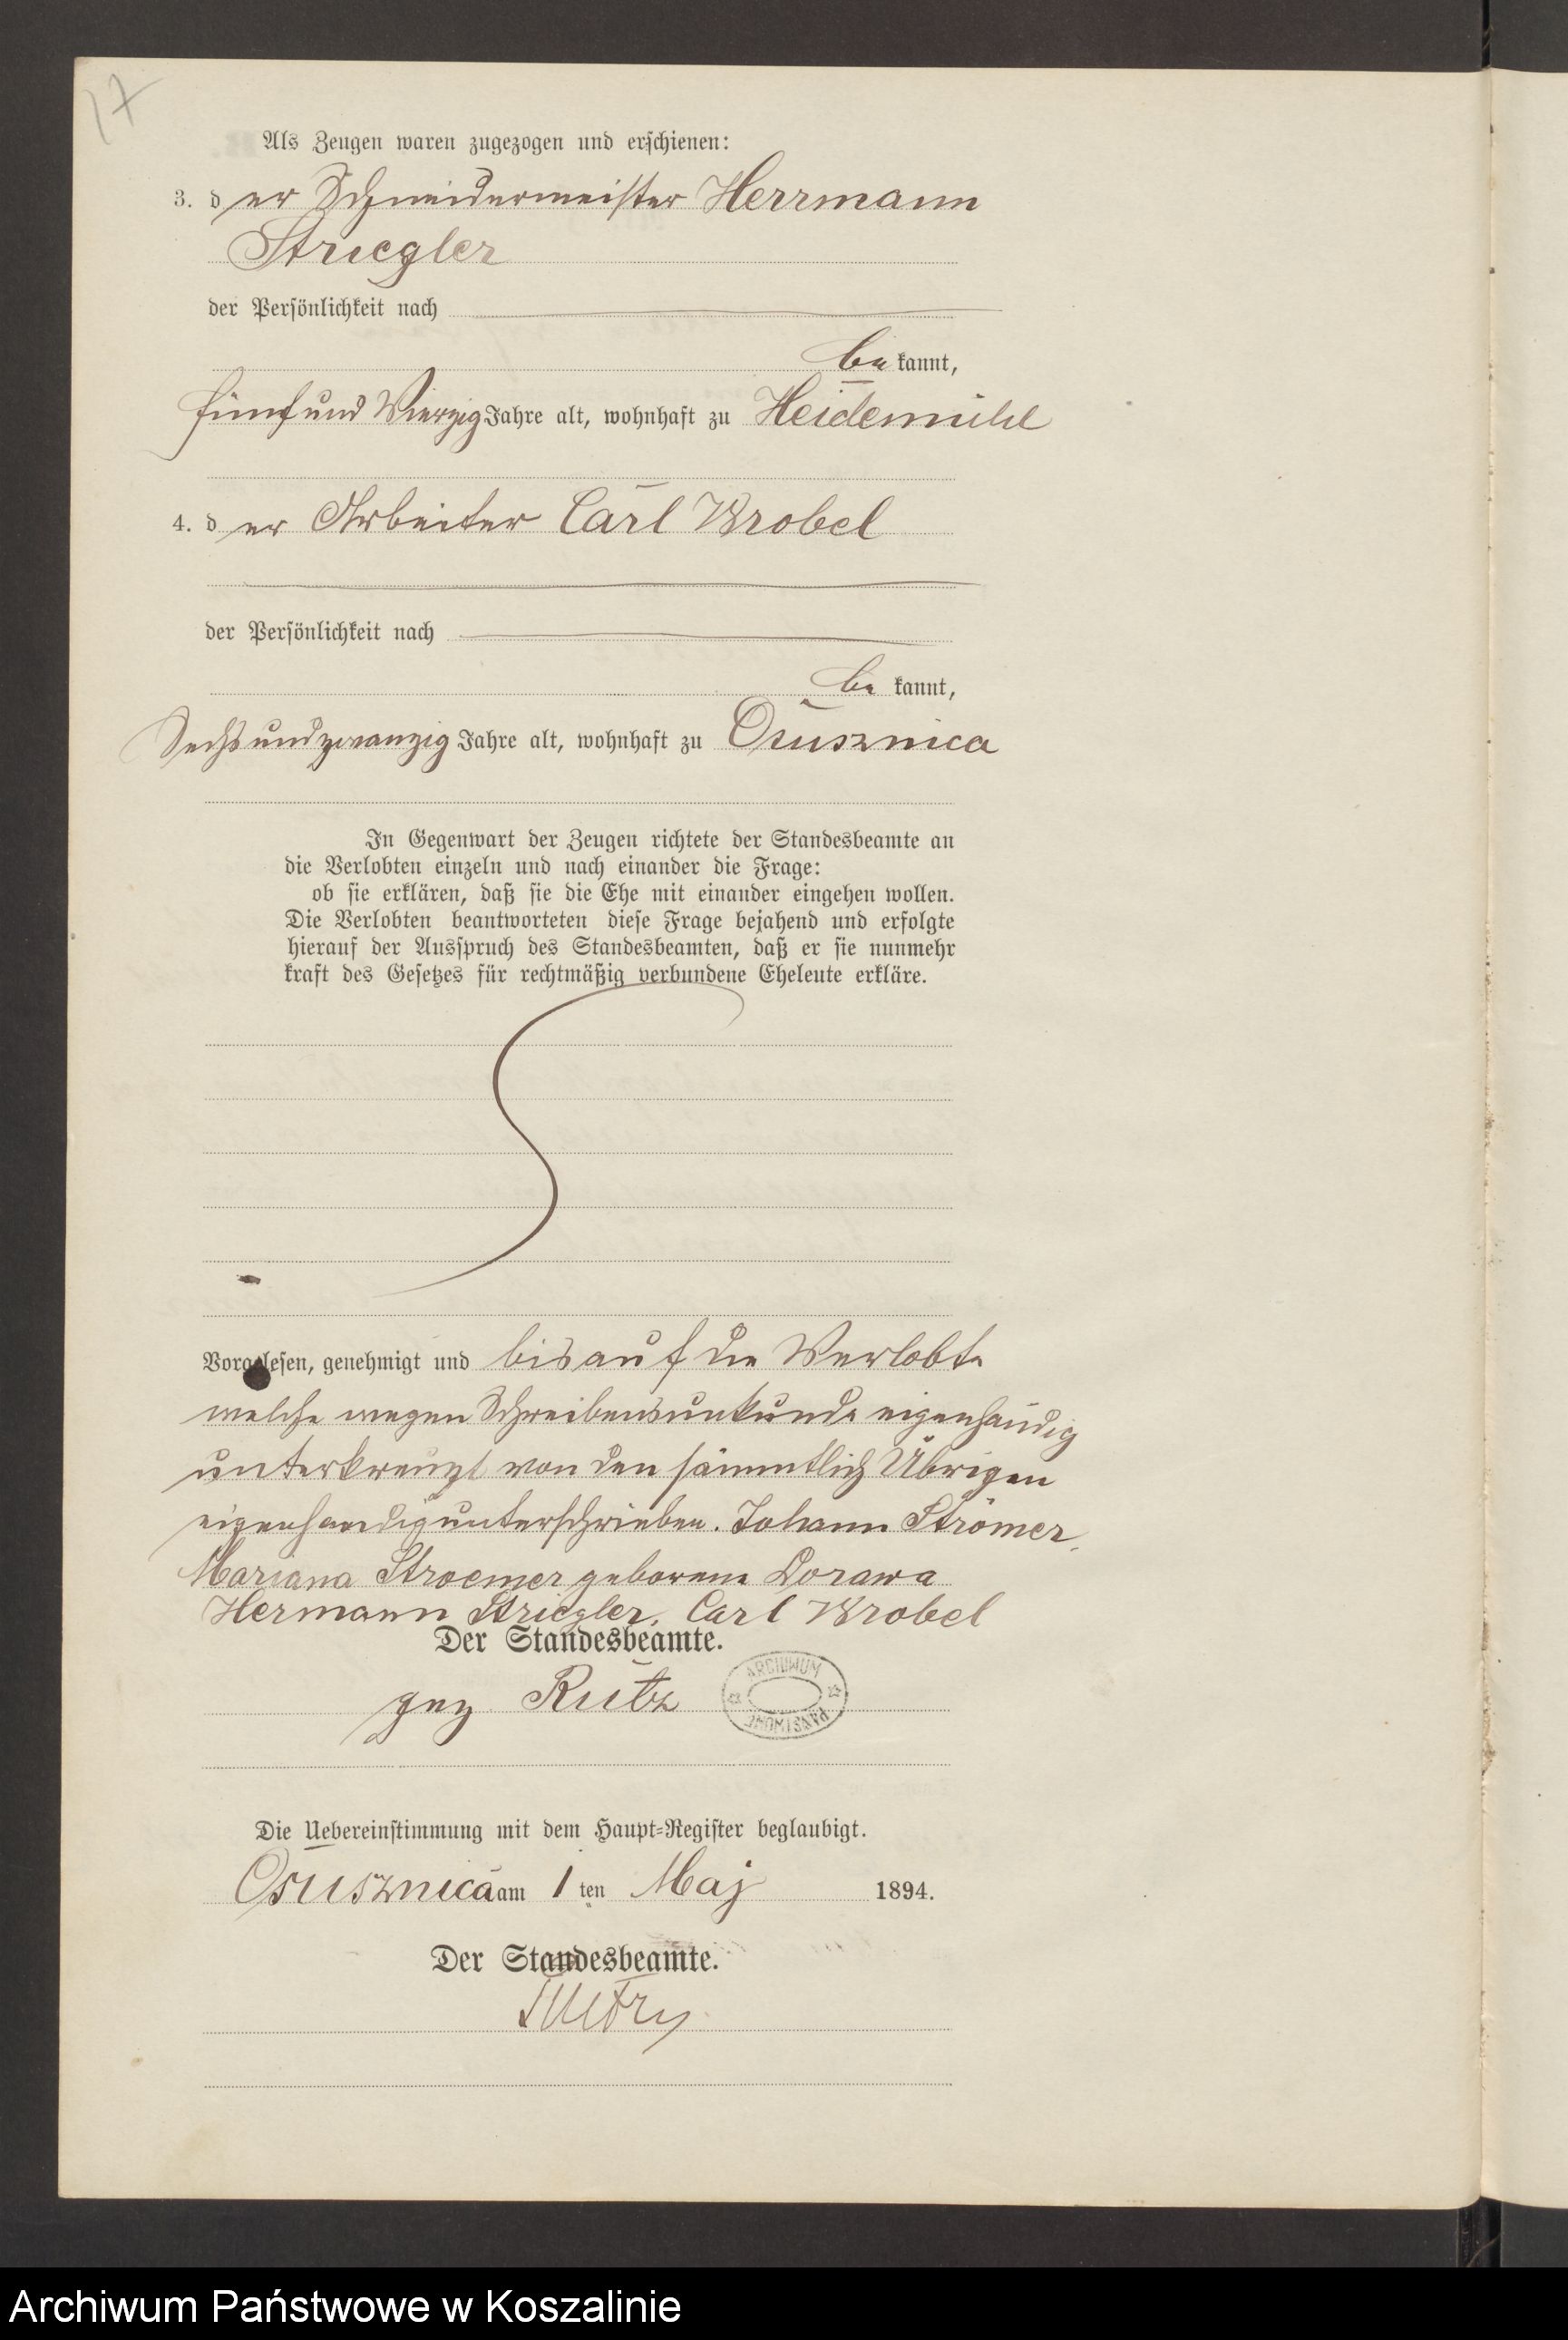 17
Als Zeugen waren zugezogen und erschienen:
3. der Schneidermeister Herrmann
Striegler
der Persönlichkeit nach
bekannt,
fünfundvierzig Jahre alt, wohnhaft zu Heidemühl
4. der Arbeiter Carl Wrobel
der Persönlichkeit nach
bekannt,
Sechsundzwanzig Jahre alt, wohnhaft zu Osusznica
In Gegenwart der Zeugen richtete der Standesbeamte an
die Verlobten einzeln und nach einander die Frage:
ob sie erklären, daß sie die Ehe mit einander eingehen wollen.
Die Verlobten beantworteten diese Frage bejahend und erfolgte
hierauf der Ausspruch des Standesbeamten, daß er sie nunmehr
kraft des Gesetzes für rechtmäßig verbundene Eheleute erkläre.
Vorgelesen, genehmigt und bis auf die Verlobte
welche wegen Schreibensunkunde eigenhändig
unterkreuzt von den sämmtlich Übrigen
eigenhändig unterschrieben. Johann Strömer.
Mariana Stroemer geborene Dorawa
Hermann Striegler. Carl Wrobel
Der Standesbeamte.
gez Rutz
ARCHIWUM
PAŃSTWOWE
Die Uebereinstimmung mit dem Haupt-Register beglaubigt.
Osusznica am 1 ten Maj 1894.
Der Standesbeamte.
Archiwum Państwowe w Koszalinie